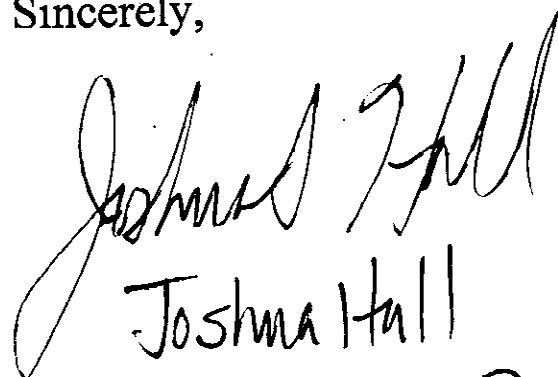 Sincerely,
Joshua Hall
Joshua Hall